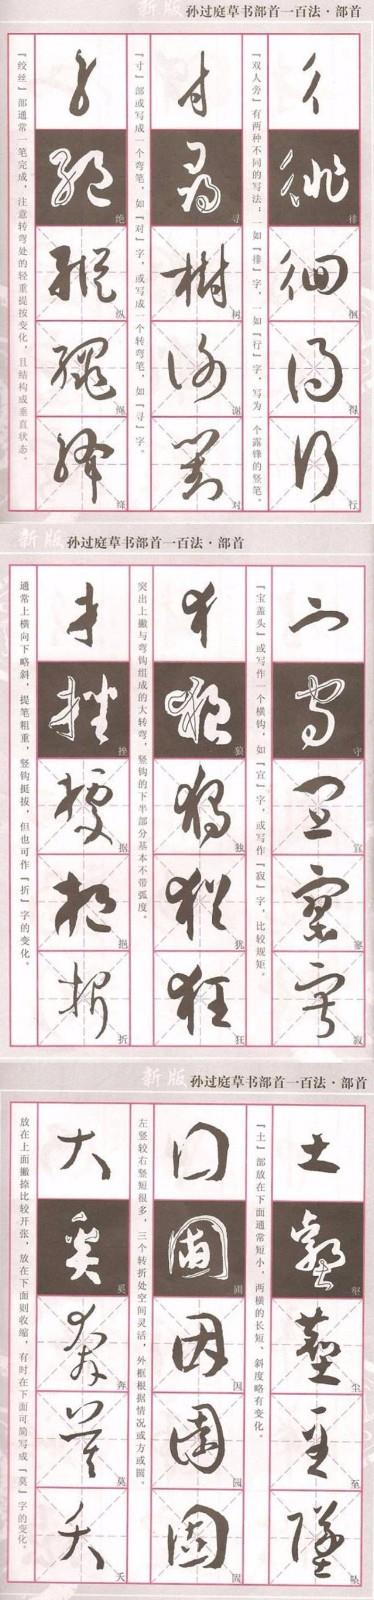 新版 孙过庭草书部首一百法·部首
『双人旁』有两种不同的写法：一如『徘』字，一如『行』字，写为一个露锋的竖笔。
彳
徘
徊
得
行
『寸』部或写成一个弯笔，如『对』字，或写成一个转弯笔，如『寻』字。
寸
寻
树
谢
对
『绞丝』部通常一笔完成，注意转弯处的轻重提按变化，且结构成垂直状态。
纟
绝
纵
绳
绛
新版 孙过庭草书部首一百法·部首
『宝盖头』或写作一个横钩，如『宣』字，或写作『寂』字，比较规矩。
宀
守
宣
寂
突出上撇与弯钩组成的大转弯，竖钩的下半部分基本不带弧度。
犭
狼
独
犹
狂
通常上横向下略斜，提笔粗重，竖钩挺拔，但也可作『折』字的变化。
扌
挫
据
挹
折
新版 孙过庭草书部首一百法·部首
『土』部放在下面通常短小，两横的长短、斜度略有变化。
土
壑
尘
至
坠
左竖较右竖短很多，三个转折处空间灵活，外框根据情况或方或圆。
囗
圆
因
园
固
放在上面撇捺比较开张，放在下面则收缩，有时在下面可简写成『莫』字的变化。
大
奚
奔
莫
夭